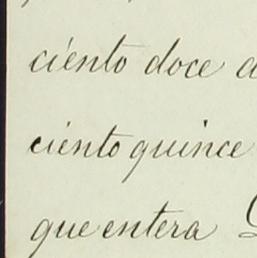 ciento doce
ciento quince
que entera